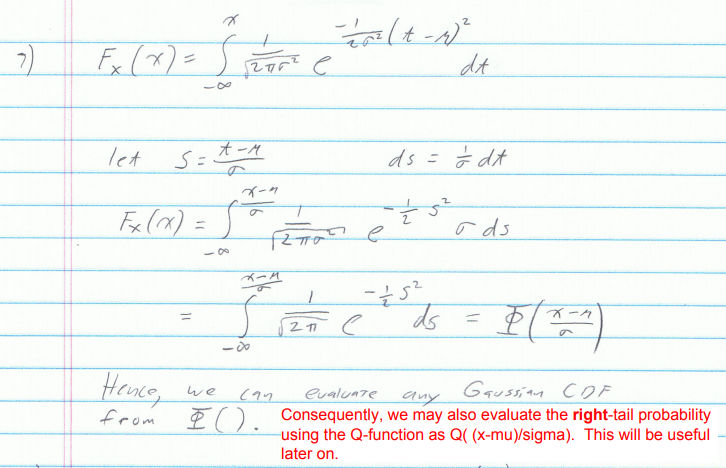 7) F_x(x) = ∫_{-∞}^{x} 1/√(2πσ²) e^{-1/(2σ²) (t-μ)²} dt
let s = (t-μ)/σ ds = 1/σ dt
F_x(x) = ∫_{-∞}^{(x-μ)/σ} 1/√(2πσ²) e^{-1/2 s²} σ ds
= ∫_{-∞}^{(x-μ)/σ} 1/√(2π) e^{-1/2 s²} ds = Φ((x-μ)/σ)
Hence, we can evaluate any Gaussian CDF
from Φ().
Consequently, we may also evaluate the right-tail probability
using the Q-function as Q( (x-mu)/sigma). This will be useful
later on.